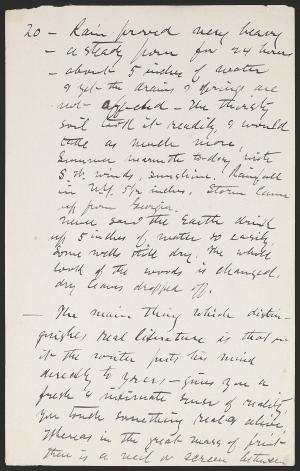 20 - Rain proved very heavy
- a steady pour for 24 hours
- about 5 inches of water
& yet the drains & springs are
not affected - the thirsty
soil took it readily, & would
take as much more,
Summer warmth to-day, with
S.W. winds, sunshine. Rainfall
in N.Y. 5 1/2 inches. Storm came
up from Georgia.
Never saw the Earth drink
up 5 inches of water so easily,
Some wells still dry. The whole
look of the woods is changed,
dry leaves dropped off.
- The main thing which distin-
guishes real literature is that in
it the writer puts his mind
directly to yours - gives you a
fresh & intimate sense of reality,
You touch something real & alive,
Whereas in the great mass of print
there is a veil or screen between